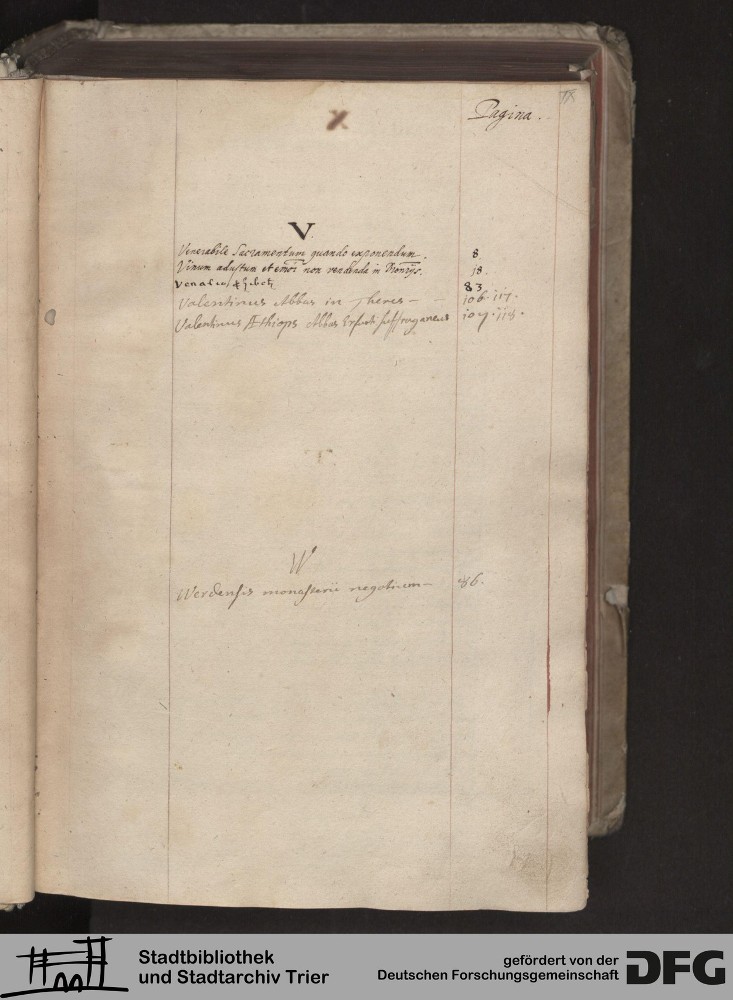 Pagina.
V
Venerabile Sacramentum quando exponendum. 8
Vinum adustum et non vendenda in 18.
83.
Valentinus Abbas in Theres - - 106. 117.
Valentinus Æthiops Abbas Erfurti suffraganeus 107. 118.
W
Werdensis monasterii negotium - 86.
Stadtbibliothek
und Stadtarchiv Trier
gefördert von der
Deutschen Forschungsgemeinschaft
DFG